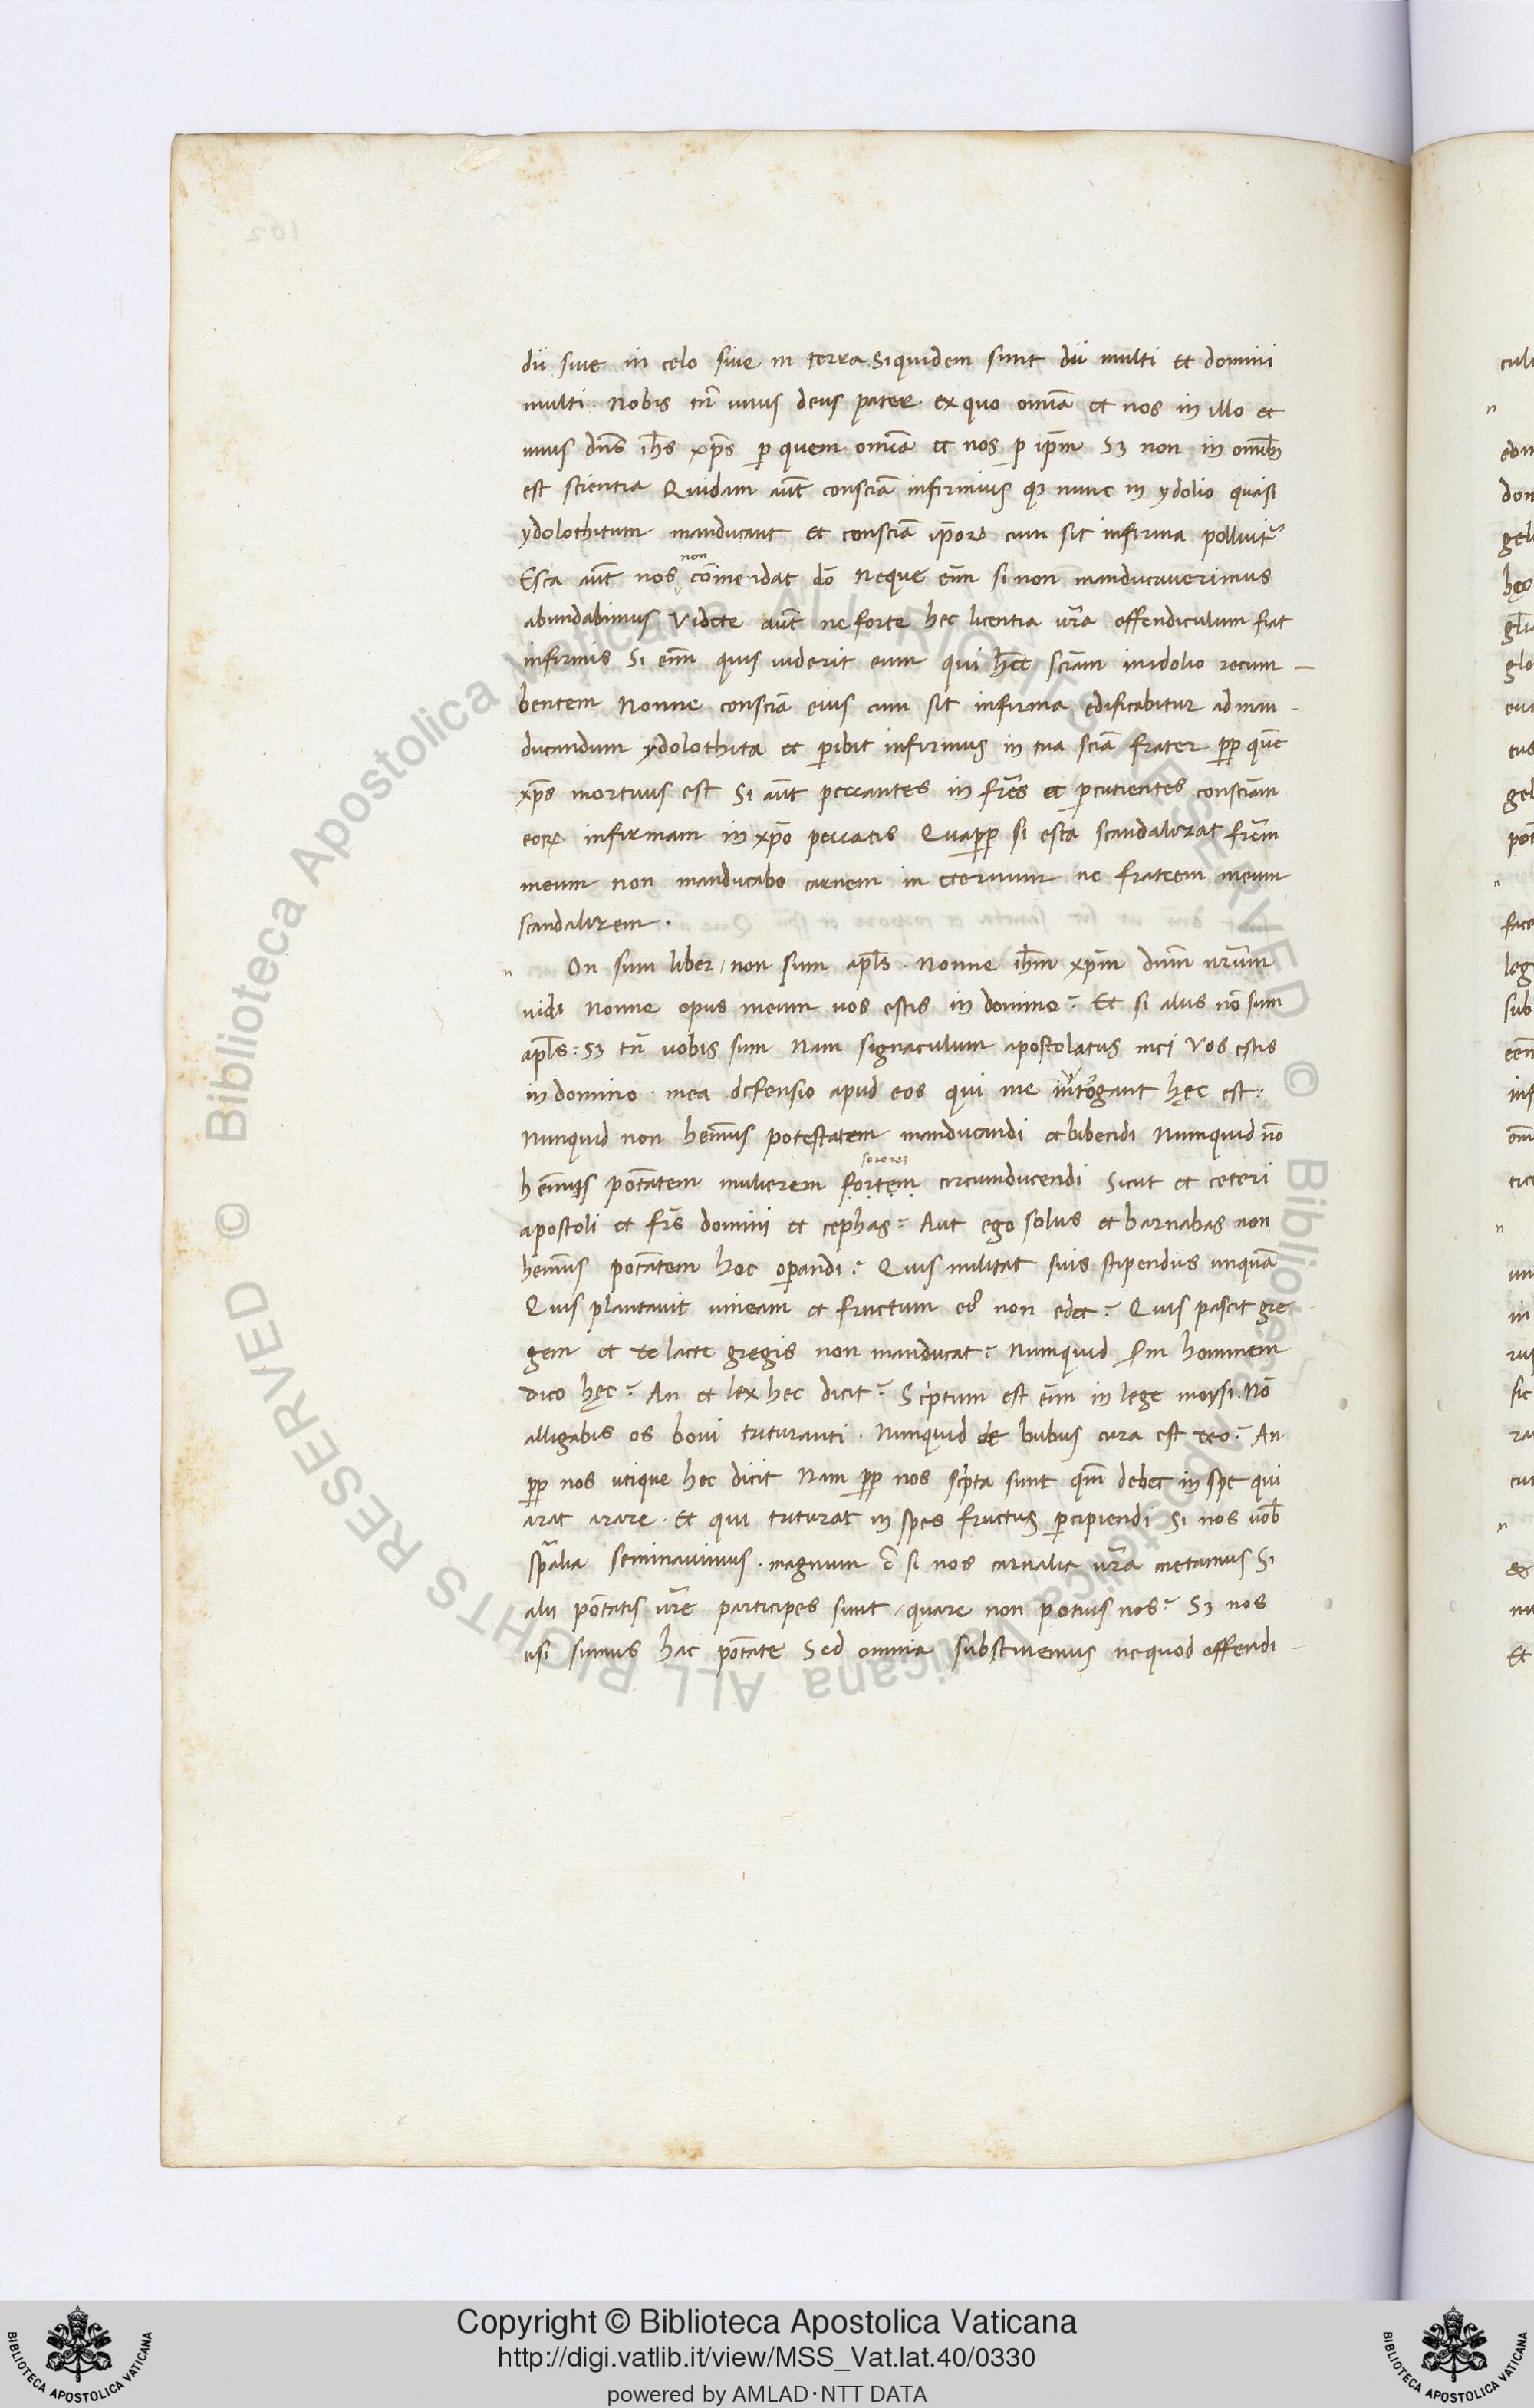 dii siue in celo siue in terra Siquidem sunt dii multi et domini
multi. Nobis tn̄ unus deus pater ex quo om̄ia et nos in illo et
unus dn̄s ih̄s xp̄s ꝑ quem om̄ia et nos ꝑ ip̄m Sꝫ non in om̄ib
est scientia Quidam aūt conscīa infirmius qꝫ nunc in ydolio quasi
ydolothitum manducant et conscīa ip̄oꝝ cum sit infirma polluit̄
non
Esca aūt nos com̄endat dō Neque em̄ si non manducauerimus
abundabimus Videte aūt ne forte hec licentia ur̄a offendiculum fiat
infirmis Si em̄ quis uiderit eum qui h̄et scīam in idolio recum
bentem Nonne conscīa eius cum sit infirma edificabitur ad man-
ducandum ydolothita et ꝑibit infirmus in tua scīa frater ꝓp quē
xp̄s mortuus est Si aūt peccantes in fr̄es et ꝑcutientes conscīam
eoꝝ infirmam in xp̄o peccatis Quaꝓp si esca scandalizat fr̄em
meum non manducabo carnem in eternum ne fratrem meum
scandalizem.
n On sum liber/non sum apl̄s. Nonne ih̄m xp̄m dn̄m nr̄um
uidi Nonne opus meum uos estis in domino? Et si aliis nō sum
apl̄s: Sꝫ tn̄ uobis sum Nam signaculum apostolatus mei Vos estis
in domino. mea defensio apud eos qui me int̄rogant hęc est.
Nunquid non hēmus potestatem manducandi et bibendi Numquid nō
sorores
hēmus pot̄atem mulierem fortem circumducendi Sicut et ceteri
apostoli et fr̄s domini et cephas? Aut ego solus et barnabas non
hēmus pot̄atem hoc oꝑandi? Quis militat suis stipendiis unquā
Quis plantauit uineam et fructum ei non edet? Quis pascit gre-
gem et de lacte gregis non manducat? Numquid s̄m hominem
dico hęc? An et lex hec dicit? Sc̄ptum est em̄ in lege moysi. Nō
alligabis os boui trituranti. Nunquid de bubus cura est deo? An
ꝓp nos utique hec dicit Nam ꝓp nos sc̄pta sunt qm̄ debet in spe qui
arat arare. Et qui triturat in spes fructus ꝑcipiendi Si nos uob
sp̄alia seminauimus. magnum ē si nos carnalia ur̄a metamus Si
alii pot̄atis ur̄e participes sunt/quare non potius nos? Sꝫ nos
usi sumus hac pot̄ate Sed omnia substinemus ne quod offendi-
Copyright © Biblioteca Apostolica Vaticana
http://digi.vatlib.it/view/MSS_Vat.lat.40/0330
powered by AMLAD·NTT DATA